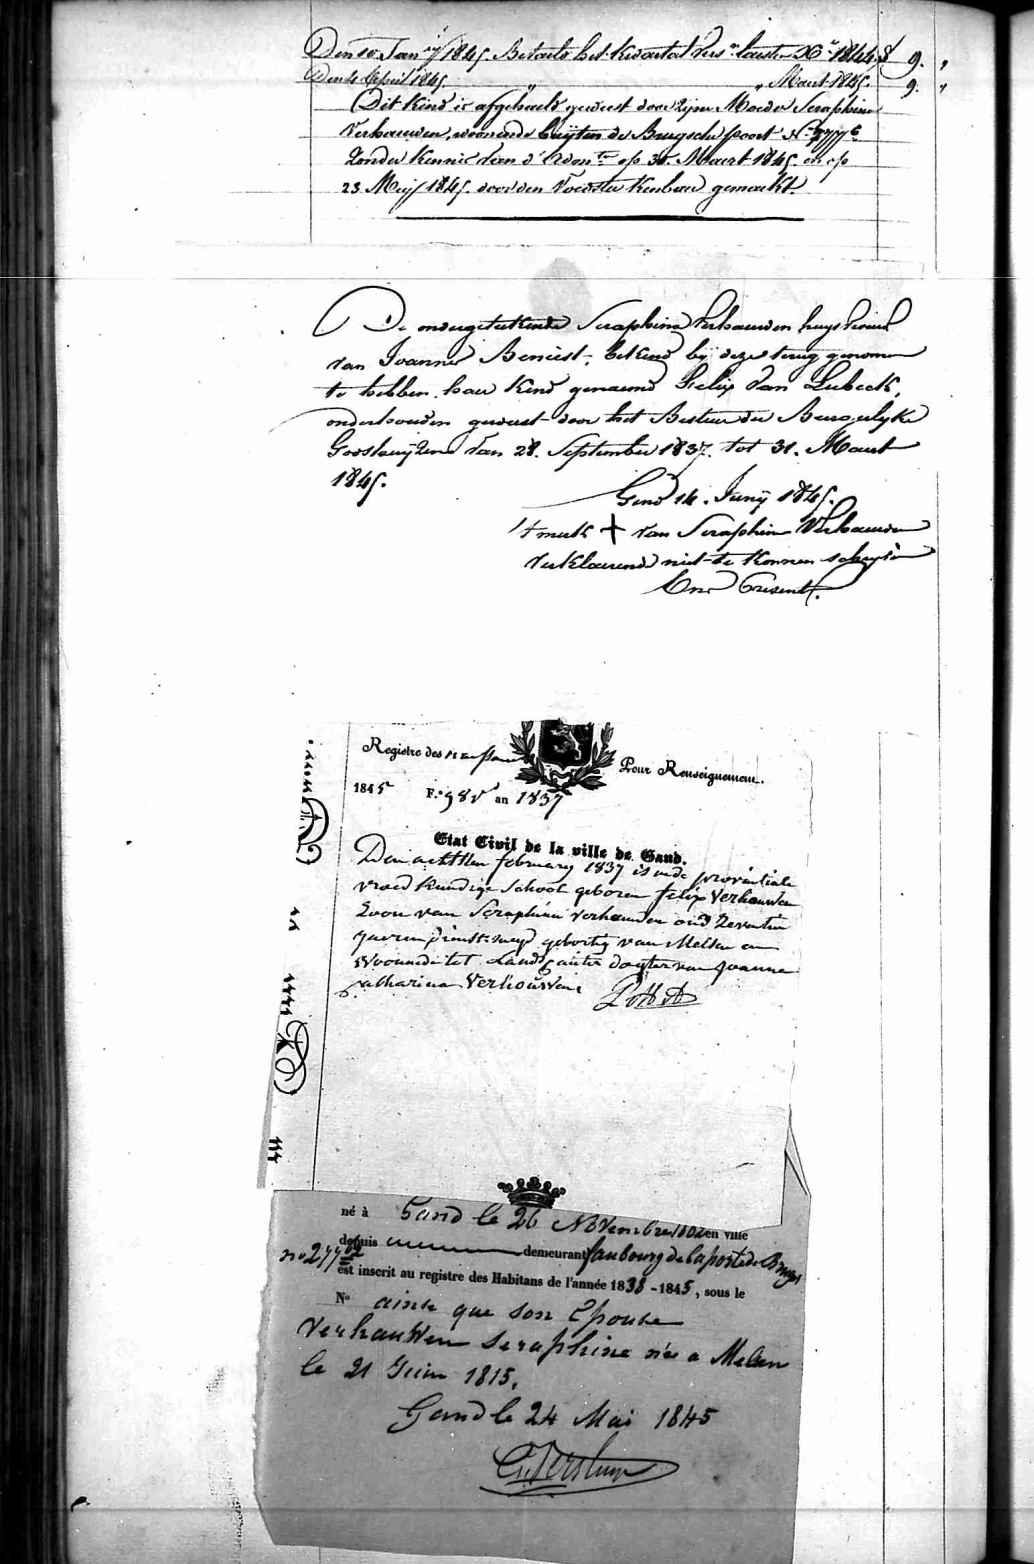 Den 10 Jan.ry 1845. Betaeld het kwartal vers.n laeste X.r 1844. 9. "
Den 4 April 1845. " " Maert 1845. 9. "
Dit kind is afgehaeld geweest door zijne Moeder Seraphine
Verhauwen, woonende buijten de Brugsche poort N.
Zonder kennis van d'Adm.tie op 31. Maert 1845. en op
23. Meij 1845. door den Voedster kenbaer gemaekt.
De ondergeteekende Seraphina Verhauwen huysvrouw
van Joannes Benoist, bekend bij deze terug genomen
te hebben haer kind genaemd Felix Van Lubeck,
onderhouden geweest door het Bestuur der Burgerlyke
Godshuijzen van 28. September 1837. tot 31. Maert
1845.
Gend 14. Junij 1845.
't merk + van Seraphine Verhauwen
verklaerende niet te konnen schryven
Registre des naissances
Pour Renseignemens.
1845 F.° 98 an 1837
Etat Civil de la ville de Gand.
Den achttien february 1837 is in de provintiale
vroedkundige School geboren felix Verhauwen
Zoon van Seraphina verhauwen oud
jaeren dienst-meyd geboortig van Melsen en
Woonende tot dogter van Joanna
Catharina Verhauwen
né à Gand le 26 Novembre 1802 en ville
depuis demeurant faubourg de la porte de Bruges
n° 277
est inscrit au registre des Habitans de l'année 1838-1845, sous le
N° ainsi que son Epouse
Verhauwen Seraphine née a Melsen
le 21 Juin 1815.
Gand le 24 Mai 1845